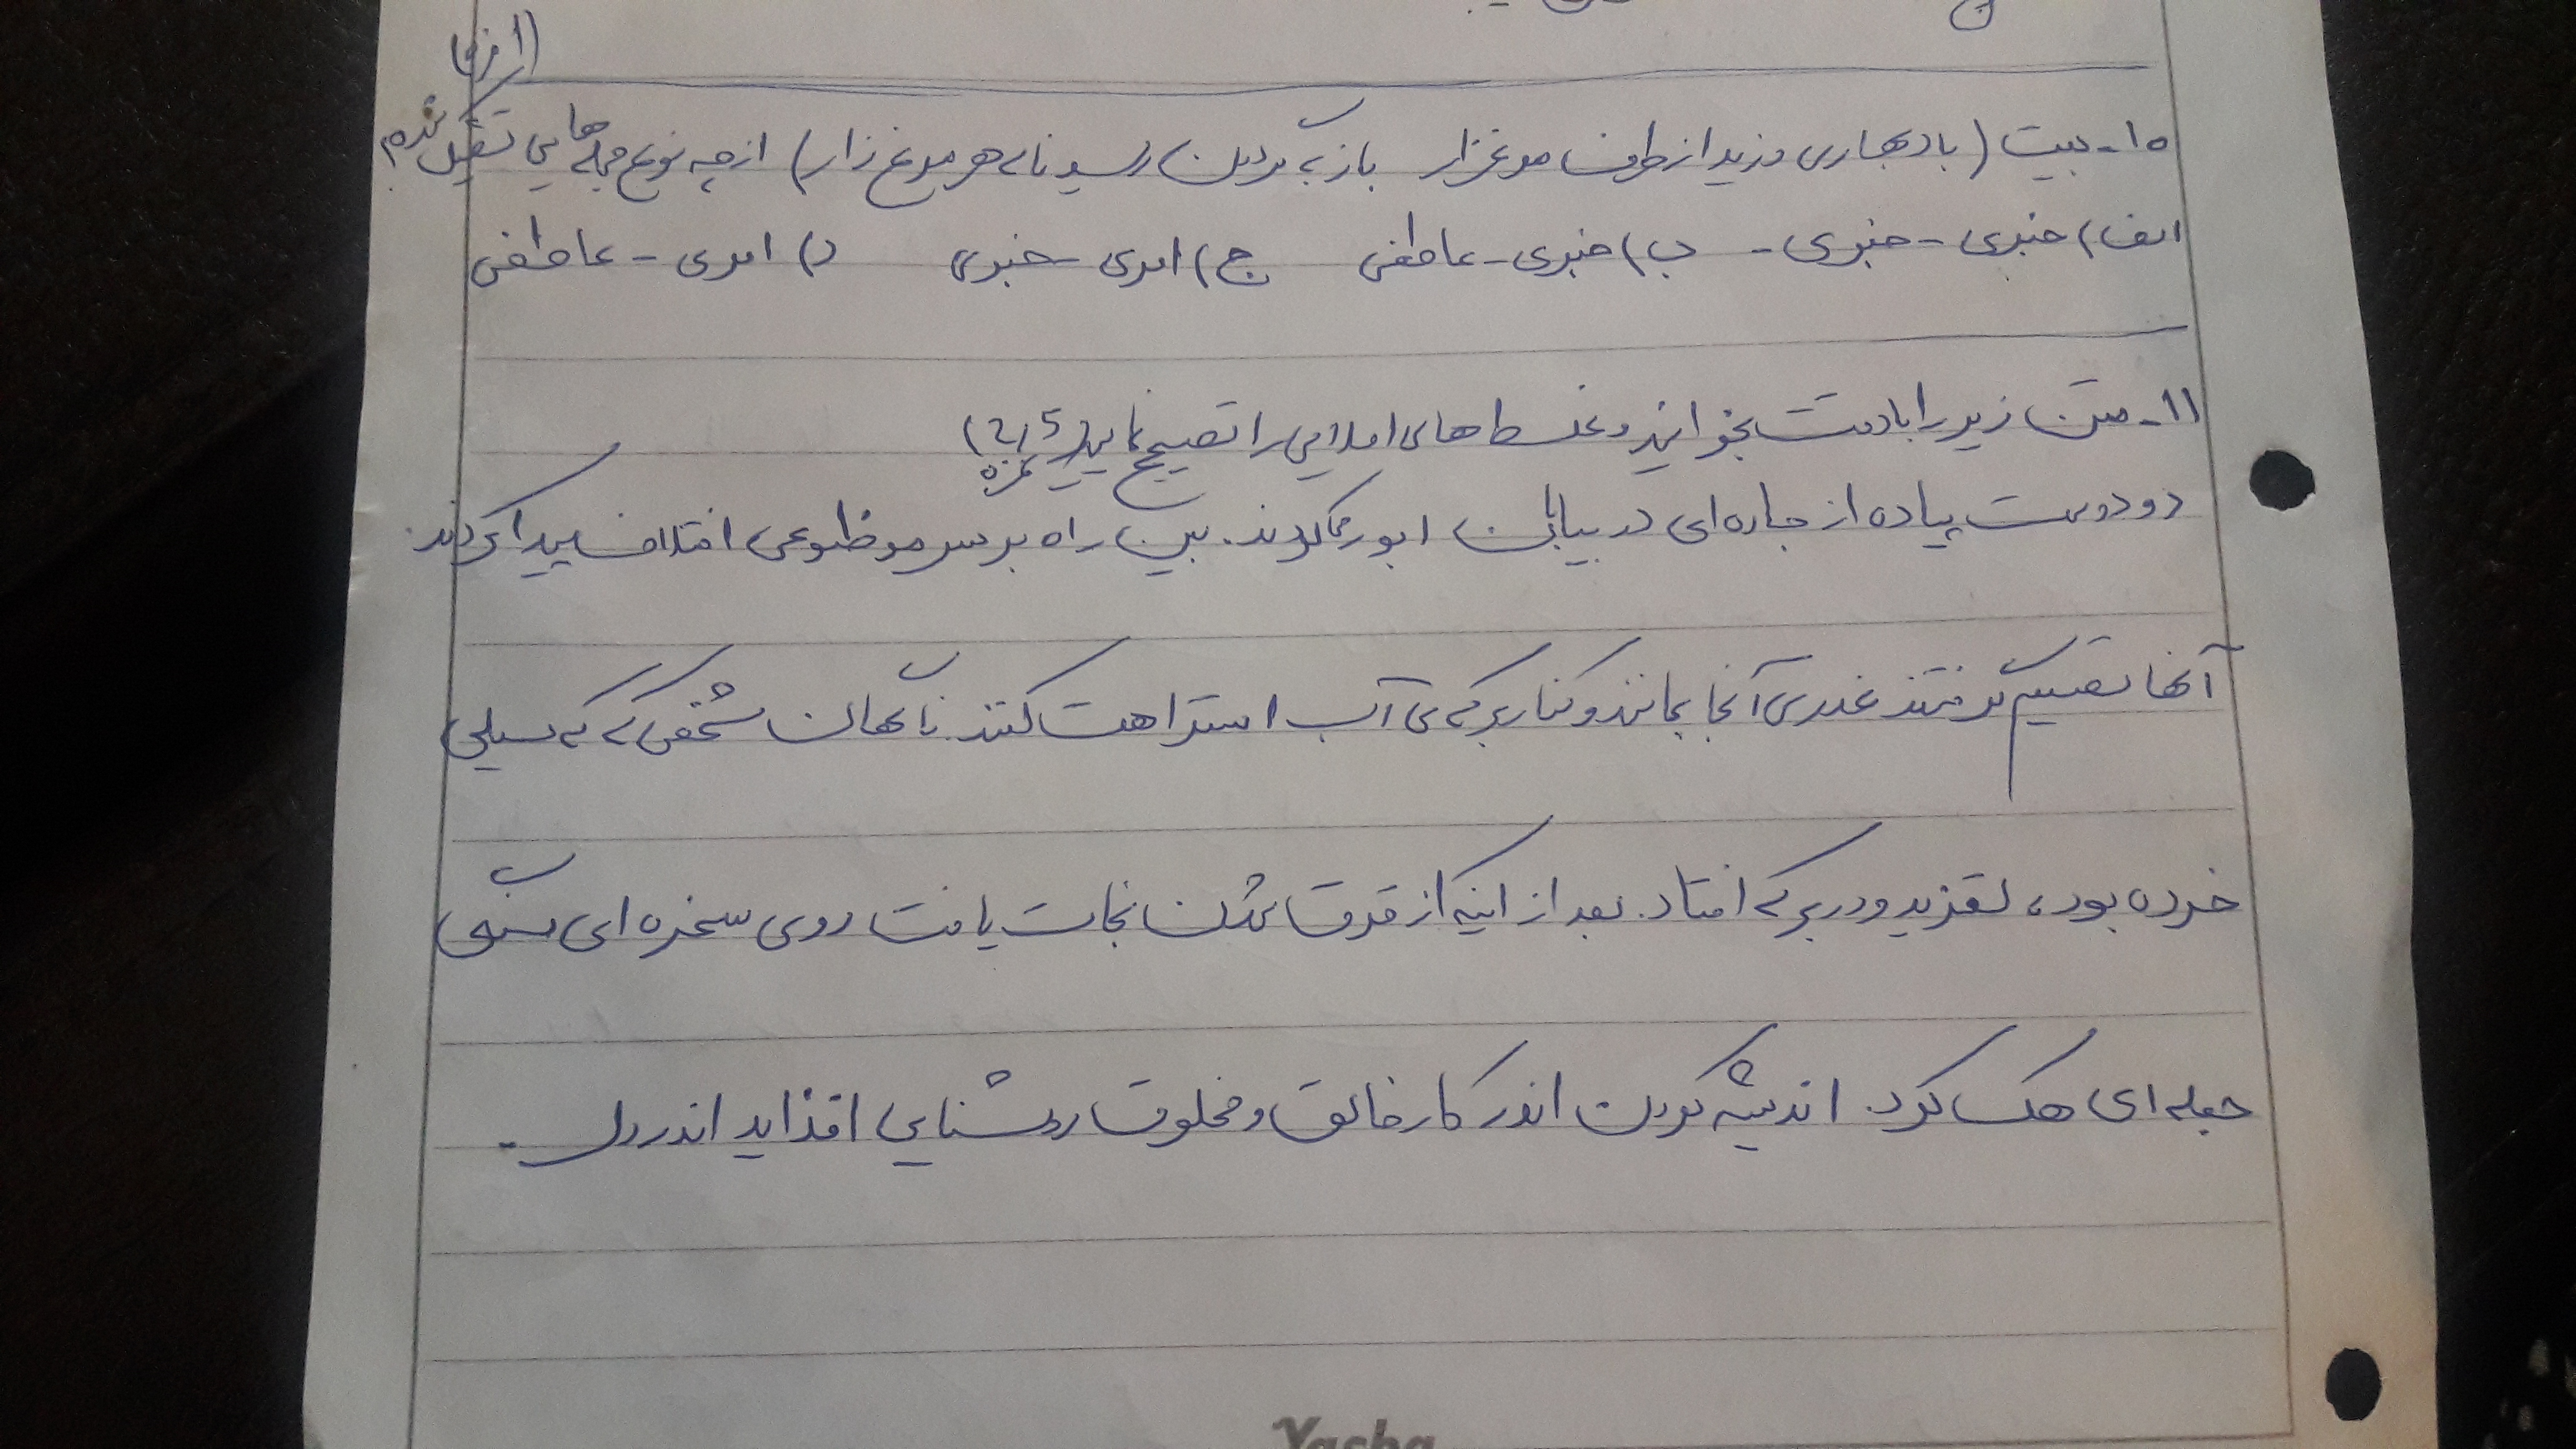 ۱۰- بیت (باد بهاری وزید از طرف مرغزار باز به گردون رسید ناله هر مرغ زار) از چه نوع جمله هایی تشکیل شده؟
الف) خبری - خبری - ب) خبری - عاطفی ج) امری - خبری د) امری - عاطفی
۱۱- متن زیر را با دقت بخوانید و غلط های املایی را تصحیح نمایید (۲/۵ نمره)
دو دوست پیاده از جاده ای در بیابان ابور می کردند. بین راه بر سر موظوعی اختلاف پیدا کردند.
آنها تقسیم گرفتند غدری آنجا بمانند و کنار برکه ی آب استراهت کنند. ناگهان شخصی که که سیلی
خرده بود، لقزید و در برکه افتاد. بعد از اینکه از قرق شدن نجات یافت روی سخره ای سنگی
جمله ای هک کرد. اندیشه کردن اندر کار خالق و مخلوق روشنایی افذاید اندر دل.
Yasha